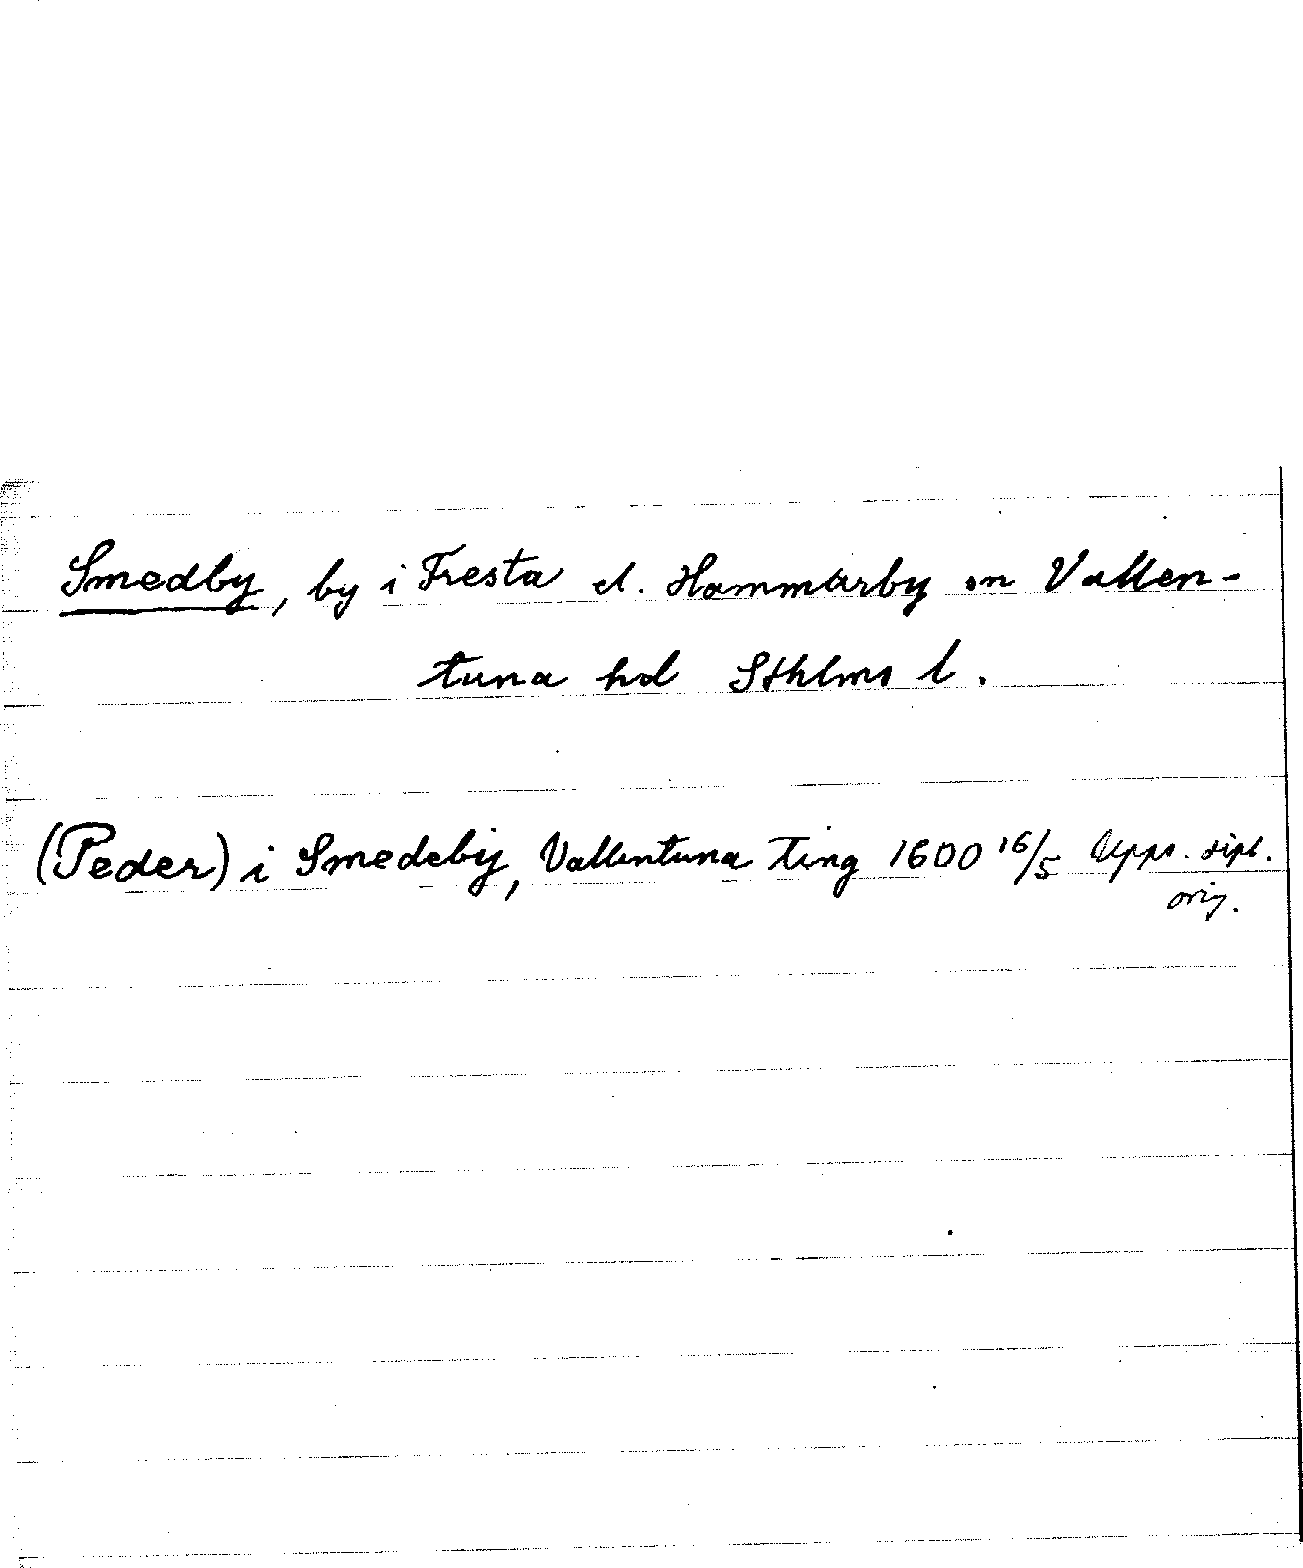 Smedby, by i Fresta el. Hammarby sn Vallen-
tuna hd Sthlms l.
(Peder) i Smedebÿ, Vallentuna Ting 1600 16/5 Upps. dipl.
orig.